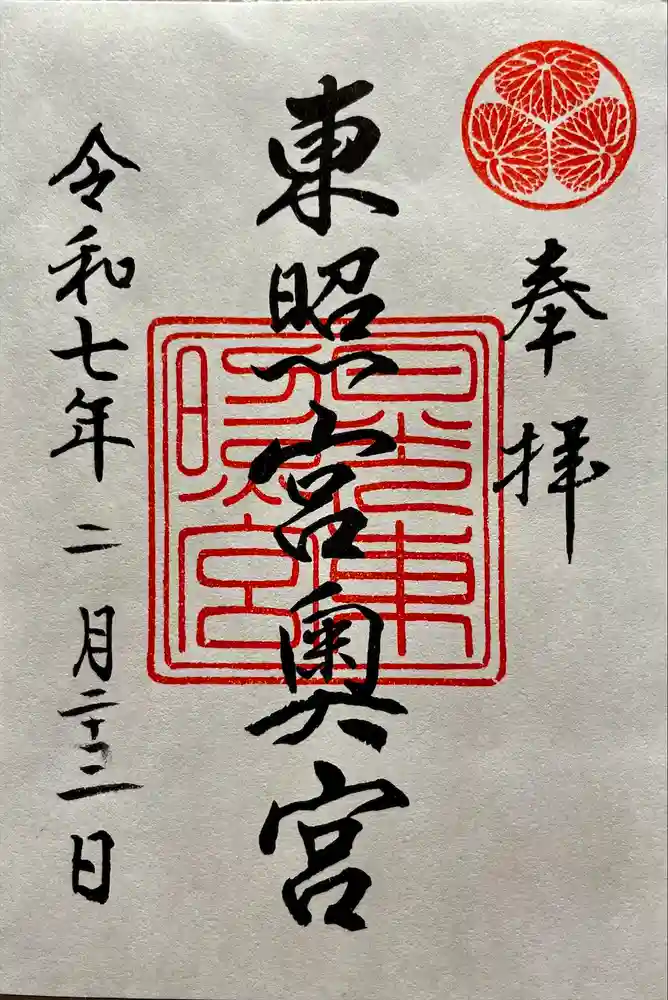 奉拝
東照宮奥宮
日光東照宮
令和七年二月二十二日